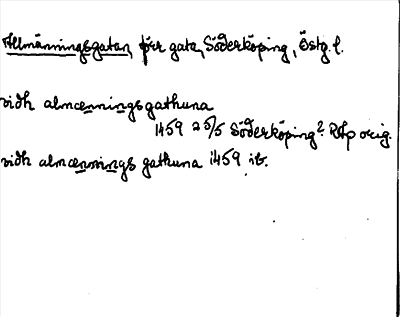 Allmänningsgatan, förr gata, Söderköping, Östg. l.
vidh almœnnings gathuna
1459 25/5 Söderköping? RAp orig.
vidh almœnnings gathuna 1459 ib.